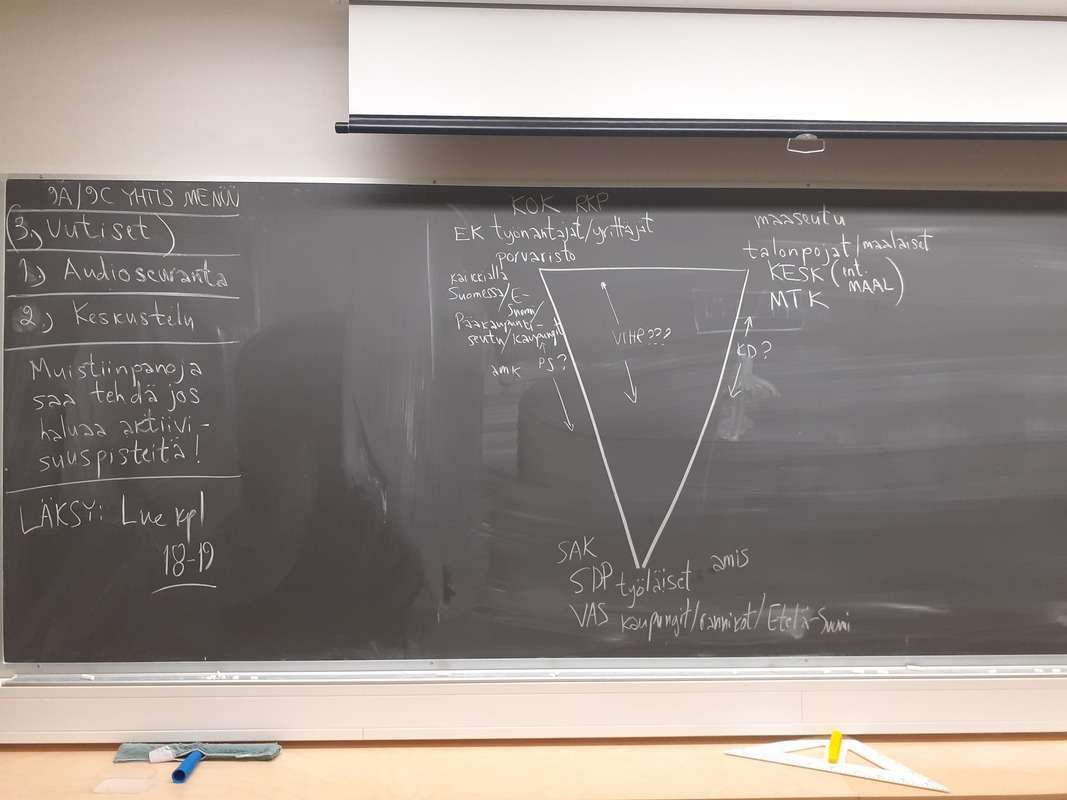 9A/9C YHTIS MENUU
(3.) Uutiset)
1.) Audioseuranta
2.) Keskustelu
Muistiinpanoja
saa tehdä jos
haluaa aktiivi-
suuspisteitä!
LÄKSY: Lue kpl
18-19
KOK RKP
EK työnantajat/yrittäjät
porvaristo
kaikkialla
Suomessa/E-
Suomi/
Pääkaupunki-
seutu/kaupungit
amk
PS?
VIHR???
KD?
maaseutu
talonpojat/maalaiset
KESK (int. MAAL)
MTK
SAK
SDP työläiset amis
VAS kaupungit/rannikot/Etelä-Suomi